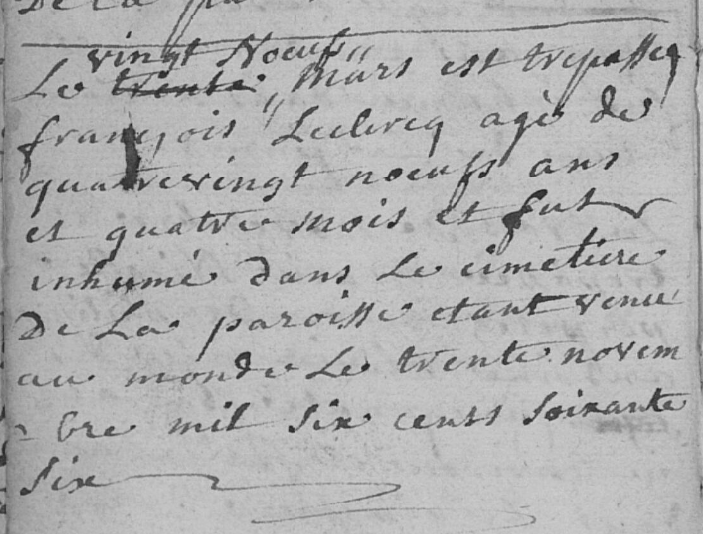 De la
vingt Noeufs
Le trente Mars est trepasseq
françois Leclercq agè de
quatrevingt noeufs ans
et quatre mois et fut
inhumé dans Le cimetiere
De La paroisse etant venu
au monde Le trente novem
-bre mil six cents soixante
six